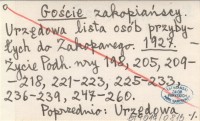 Goście zakopiańscy.
Urzędowa lista osób przyby-
łych do Zakopanego. 1927.
Życie Podh. nry 198, 205, 209-
-218, 221-223, 225-233,
236-239, 247-260.
Poprzednio: Urzędowa